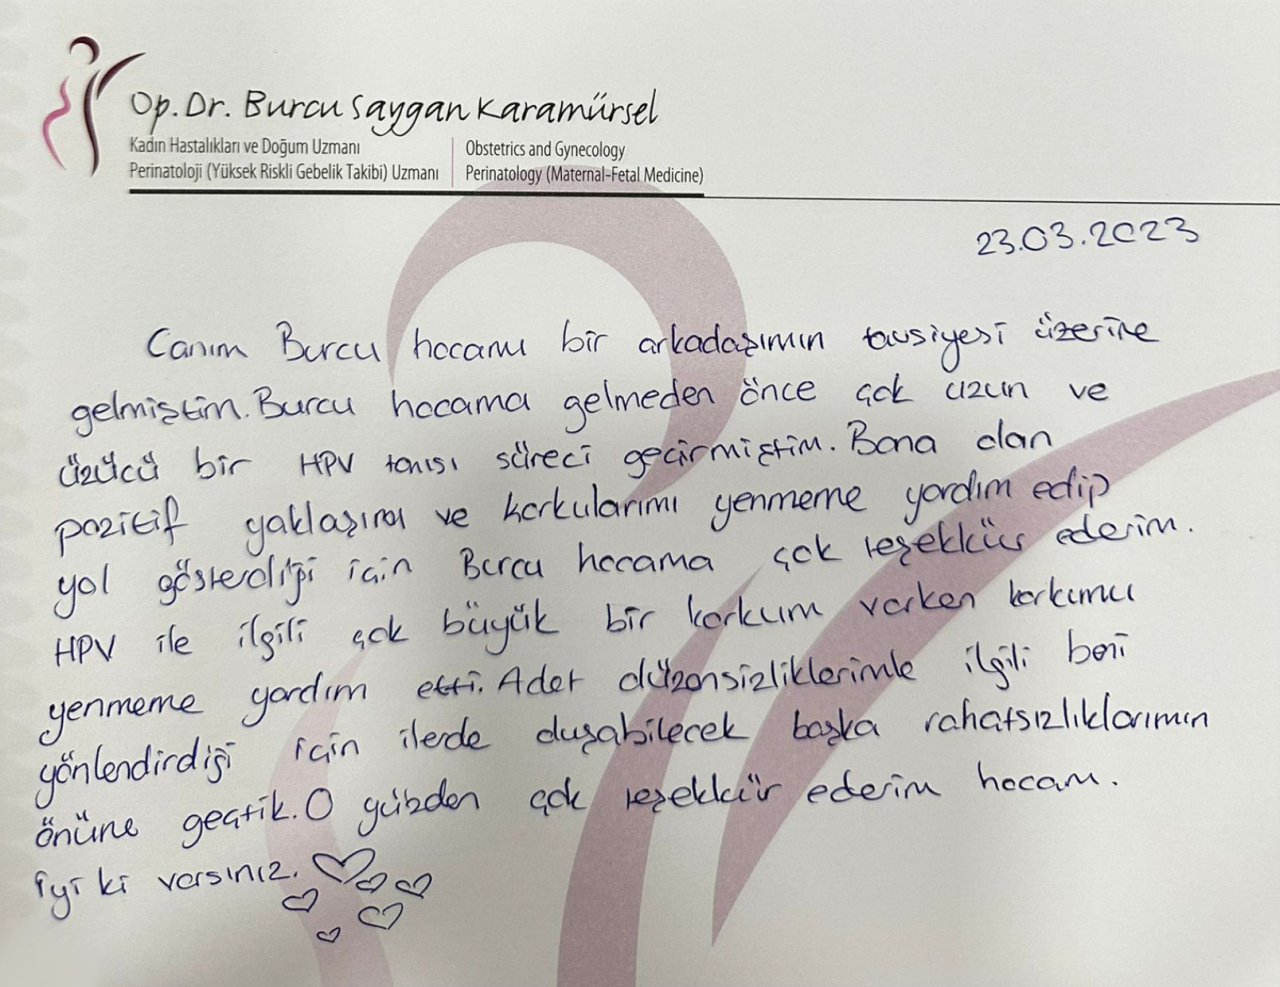 Op. Dr. Burcu Saygan Karamürsel
Kadın Hastalıkları ve Doğum Uzmanı
Perinatoloji (Yüksek Riskli Gebelik Takibi) Uzmanı
Obstetrics and Gynecology
Perinatology (Maternal-Fetal Medicine)
23.03.2023
Canım Burcu hocamı bir arkadaşımın tavsiyesi üzerine
gelmiştim. Burcu hocama gelmeden önce çok uzun ve
üzücü bir HPV tanısı süreci geçirmiştim. Bana olan
pozitif yaklaşımı ve korkularımı yenmeme yardım edip
yol gösterdiği için Burcu hocama çok teşekkür ederim.
HPV ile ilgili çok büyük bir korkum varken korkumu
yenmeme yardım etti. Adet düzensizliklerimle ilgili beni
yönlendirdiği için ilerde duşabilecek başka rahatsızlıklarımın
önüne geçtik. O yüzden çok teşekkür ederim hocam.
iyi ki varsınız.